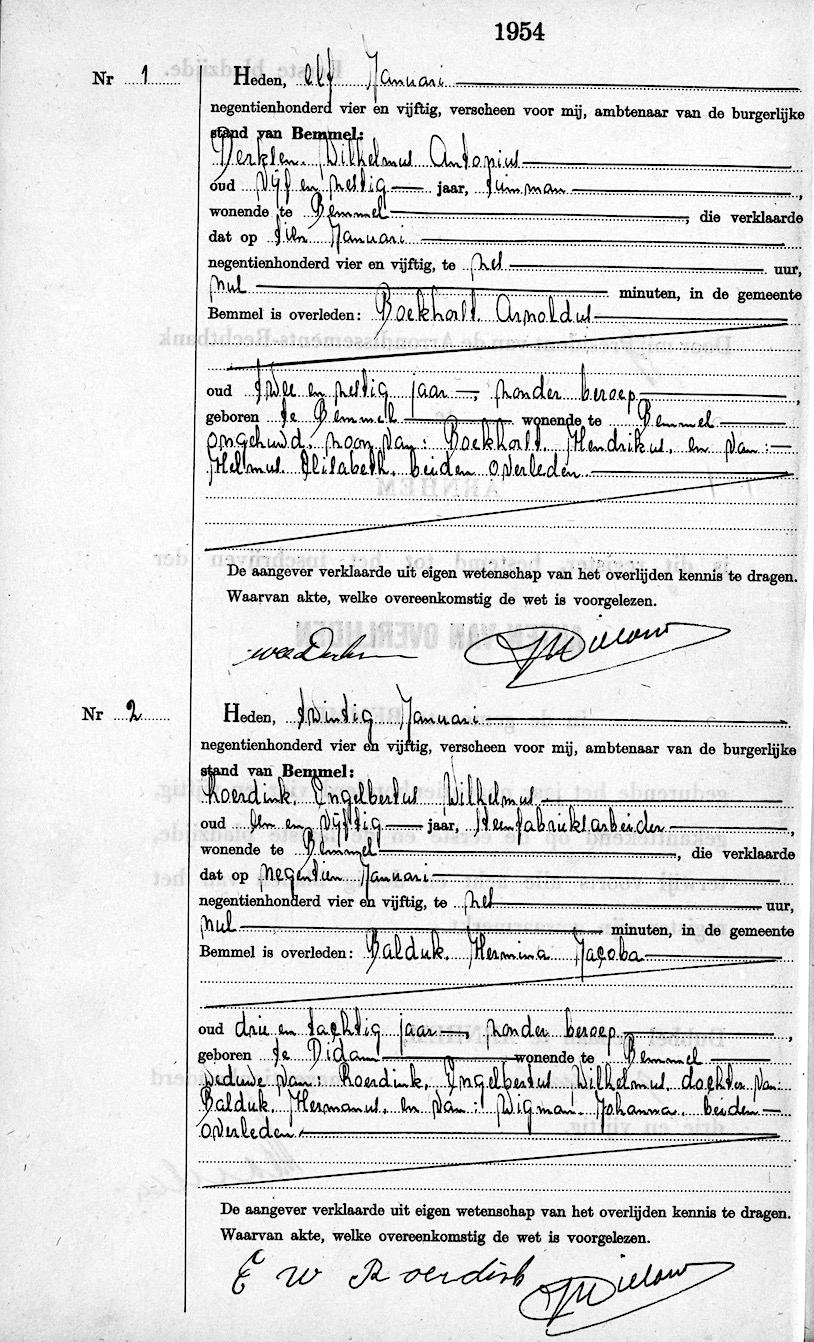 1954
Nr 1 Heden, elf Januari
negentienhonderd vier en vijftig, verscheen voor mij, ambtenaar van de burgerlijke
stand van Bemmel:
Derksen, Wilhelmus Antonius
oud vijf en zestig jaar, tuinman,
wonende te Bemmel, die verklaarde
dat op tien Januari
negentienhonderd vier en vijftig, te zes uur,
nul minuten, in de gemeente
Bemmel is overleden: Boekhorst, Arnoldus
oud twee en zestig jaar, zonder beroep,
geboren te Bemmel wonende te Bemmel
ongehuwd, zoon van: Boekhorst, Hendrikus, en van:
Helmus, Elisabeth, beiden overleden
De aangever verklaarde uit eigen wetenschap van het overlijden kennis te dragen.
Waarvan akte, welke overeenkomstig de wet is voorgelezen.
Nr 2 Heden, twintig Januari
negentienhonderd vier en vijftig, verscheen voor mij, ambtenaar van de burgerlijke
stand van Bemmel:
Roerdink, Engelbertus Wilhelmus
oud een en vijftig jaar, steenfabrieksarbeider,
wonende te Bemmel, die verklaarde
dat op negentien Januari
negentienhonderd vier en vijftig, te zes uur,
nul minuten, in de gemeente
Bemmel is overleden: Balduk, Hermina Jacoba
oud drie en tachtig jaar, zonder beroep,
geboren te Didam wonende te Bemmel
weduwe van: Roerdink, Engelbertus Wilhelmus, dochter van:
Balduk, Hermanus, en van: Wigman, Johanna, beiden
overleden.
De aangever verklaarde uit eigen wetenschap van het overlijden kennis te dragen.
Waarvan akte, welke overeenkomstig de wet is voorgelezen.
E W Roerdink